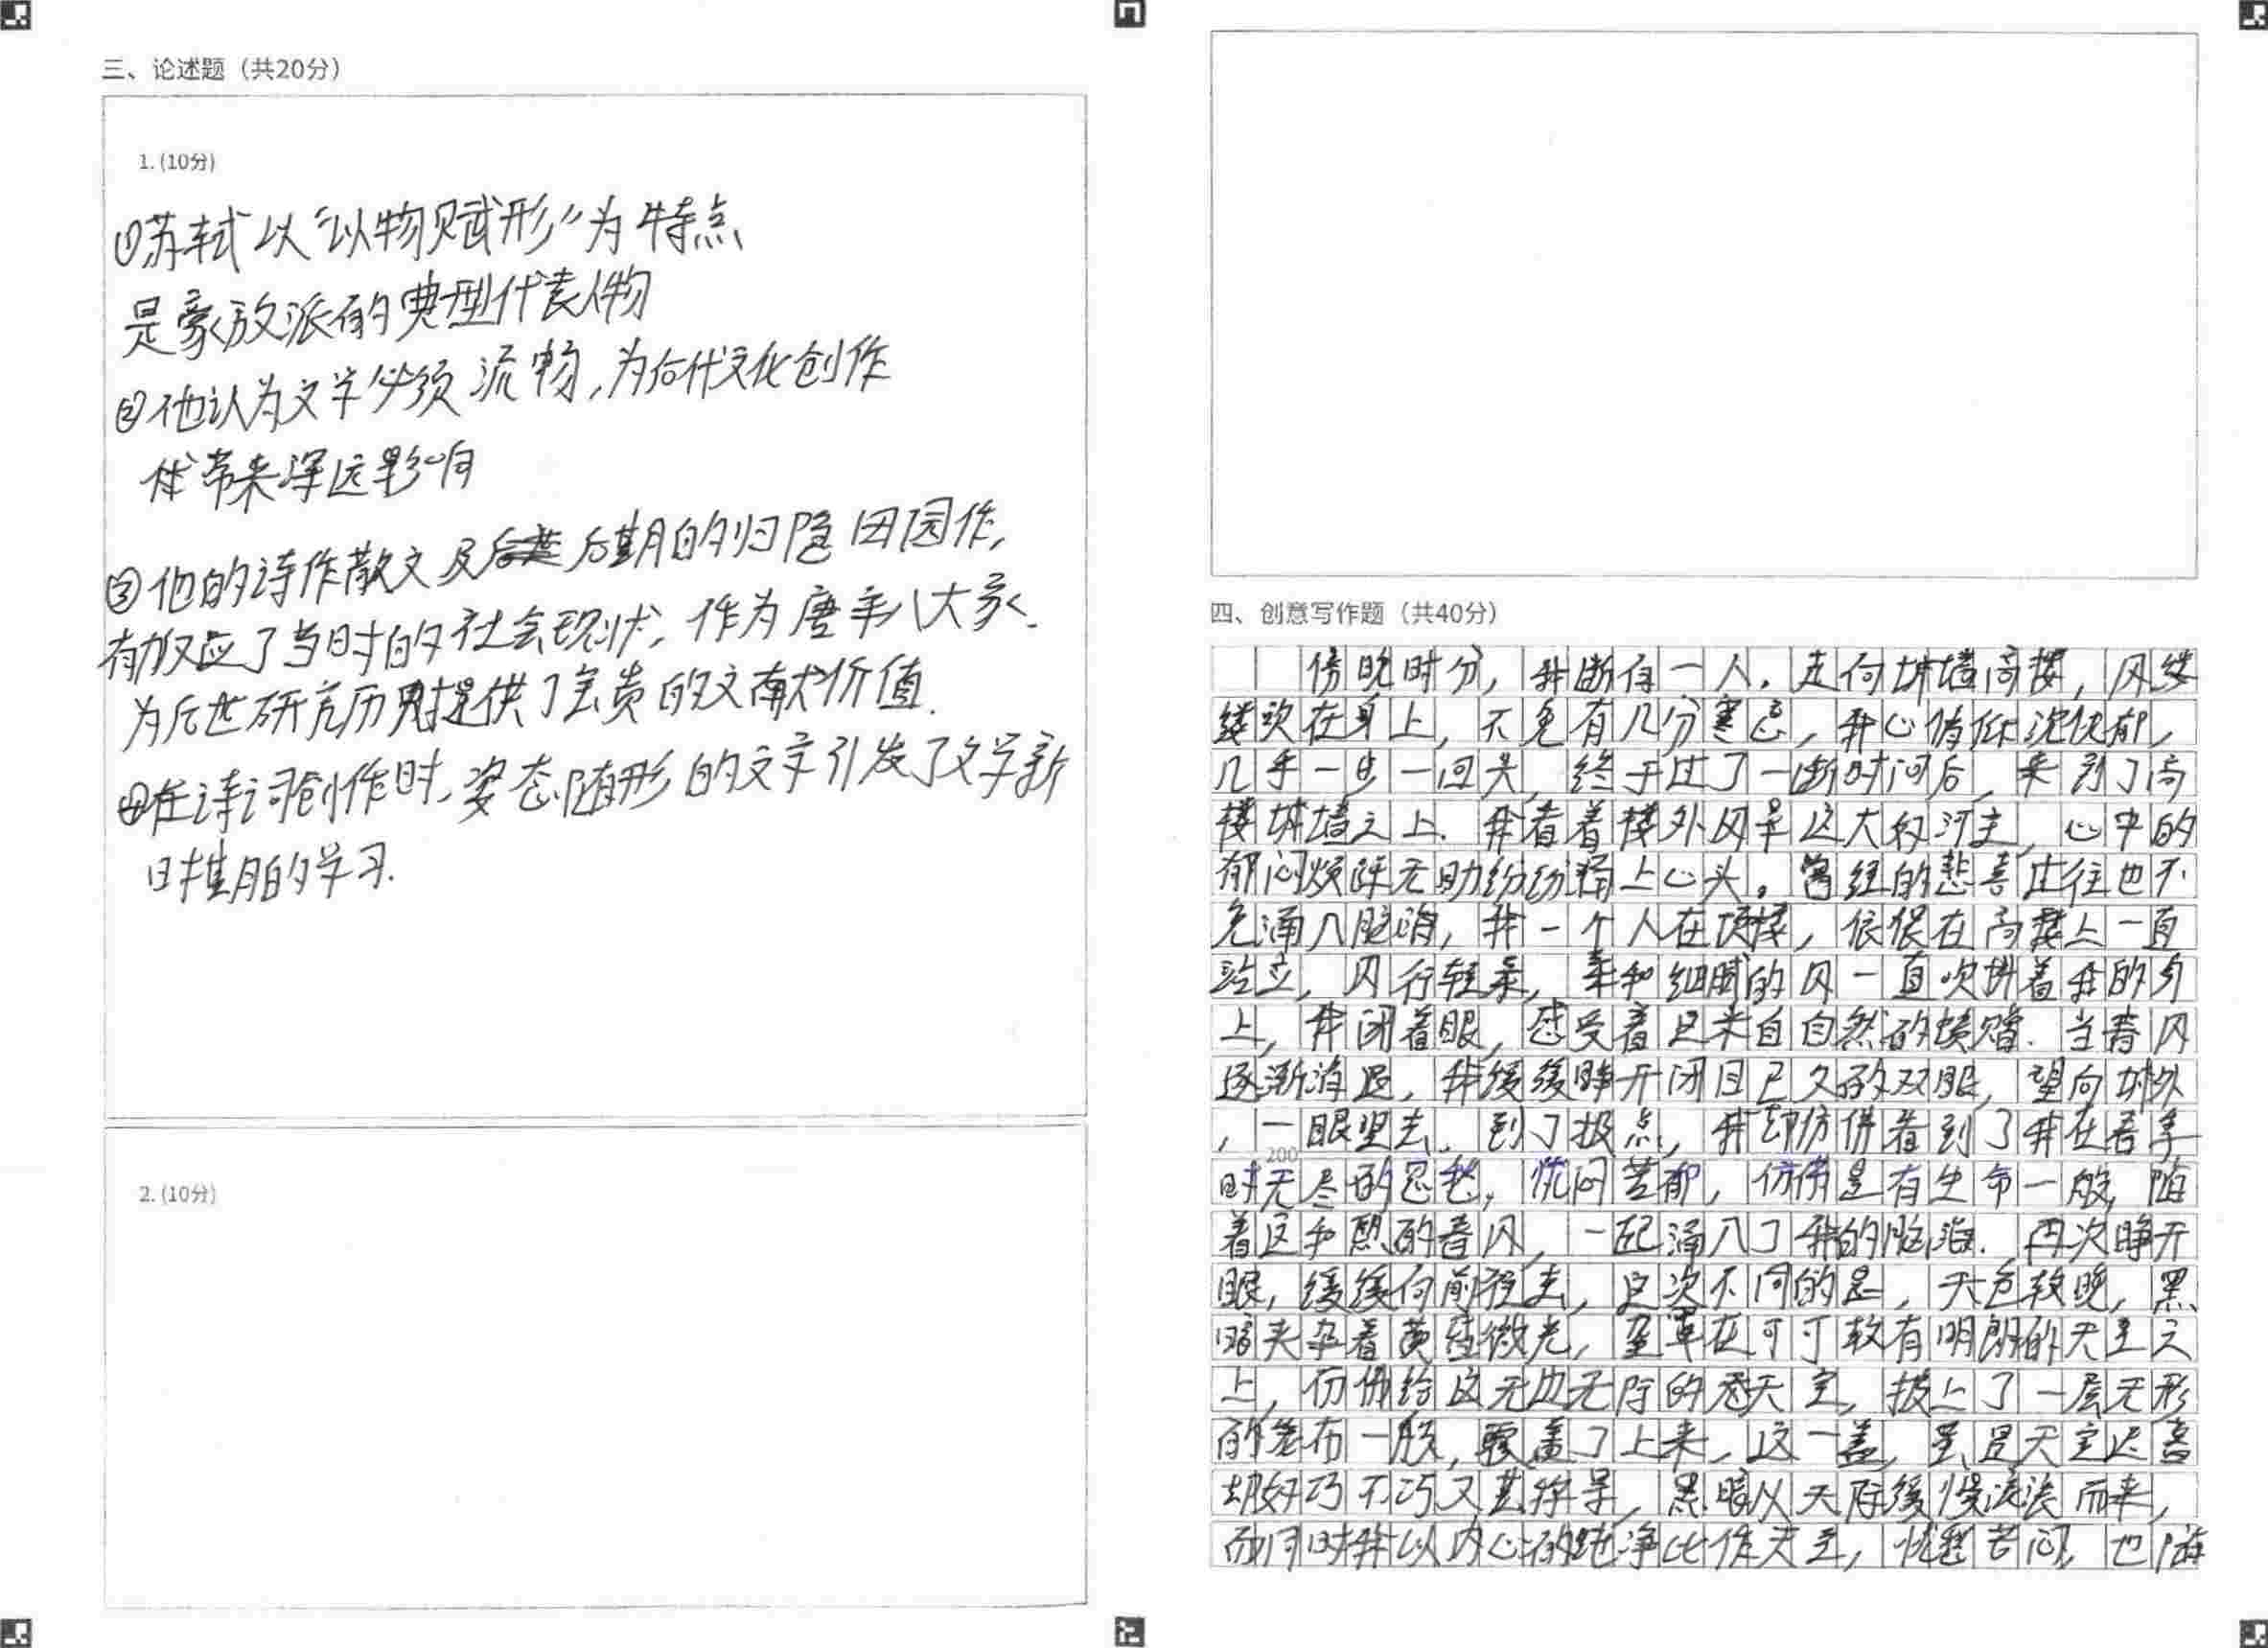 三、论述题（共20分）
1. (10分)
①苏轼以“以物赋形”为特点
是豪放派的典型代表人物
②他认为文学必须流畅，为后代文化创作
带来深远影响
③他的诗作散文及后期的归隐田园作，
有力反应了当时的社会现状，作为唐宋八大家.
为后世研究历史提供了宝贵的文献价值.
④在诗词创作时，姿态随形的文字引发了文学新
时期的学习.
2. (10分)
四、创意写作题（共40分）
傍晚时分，我断有一人。走向城墙高楼，风缕
缕吹在身上，不免有几分寒意，我心情低沉忧郁，
几乎一步一回头，终于过了一断时间后，来到了高
楼城墙之上.我看着楼外风景这大好河主，心中的
郁闷烦躁无助纷纷涌上心头。曾经的悲喜过往也不
免涌入脑海，我一个人在顶楼，依偎在高楼上一直
站立，风行轻柔，柔和细腻的风一直吹拂着我的身
上，我闭着眼，感受着这来自自然的馈赠.当春风
逐渐消退，我缓缓睁开闭目已久的双眼，望向城外
，一眼望去.到了极点，我却仿佛看到了我在春季
200
时无尽的思愁，忧闷苦郁，仿佛是有生命一般，随
着这和煦的春风，一起涌入了我的脑海.再次睁开
眼，缓缓向前望去，这次不同的是，天色较晚，黑
暗夹杂着黄昏微光，笼罩在可寸较有明朗的天空之
上，仿佛给这无边无际的天空，披上了一层无形
的卷布一般，覆盖了上来，这一盖，虽是天空迟暮
却好巧不巧又甚得景，黑暗从天际缓慢滚滚而来，
而同时我以内心的纯净比作天空，忧愁苦闷，也随